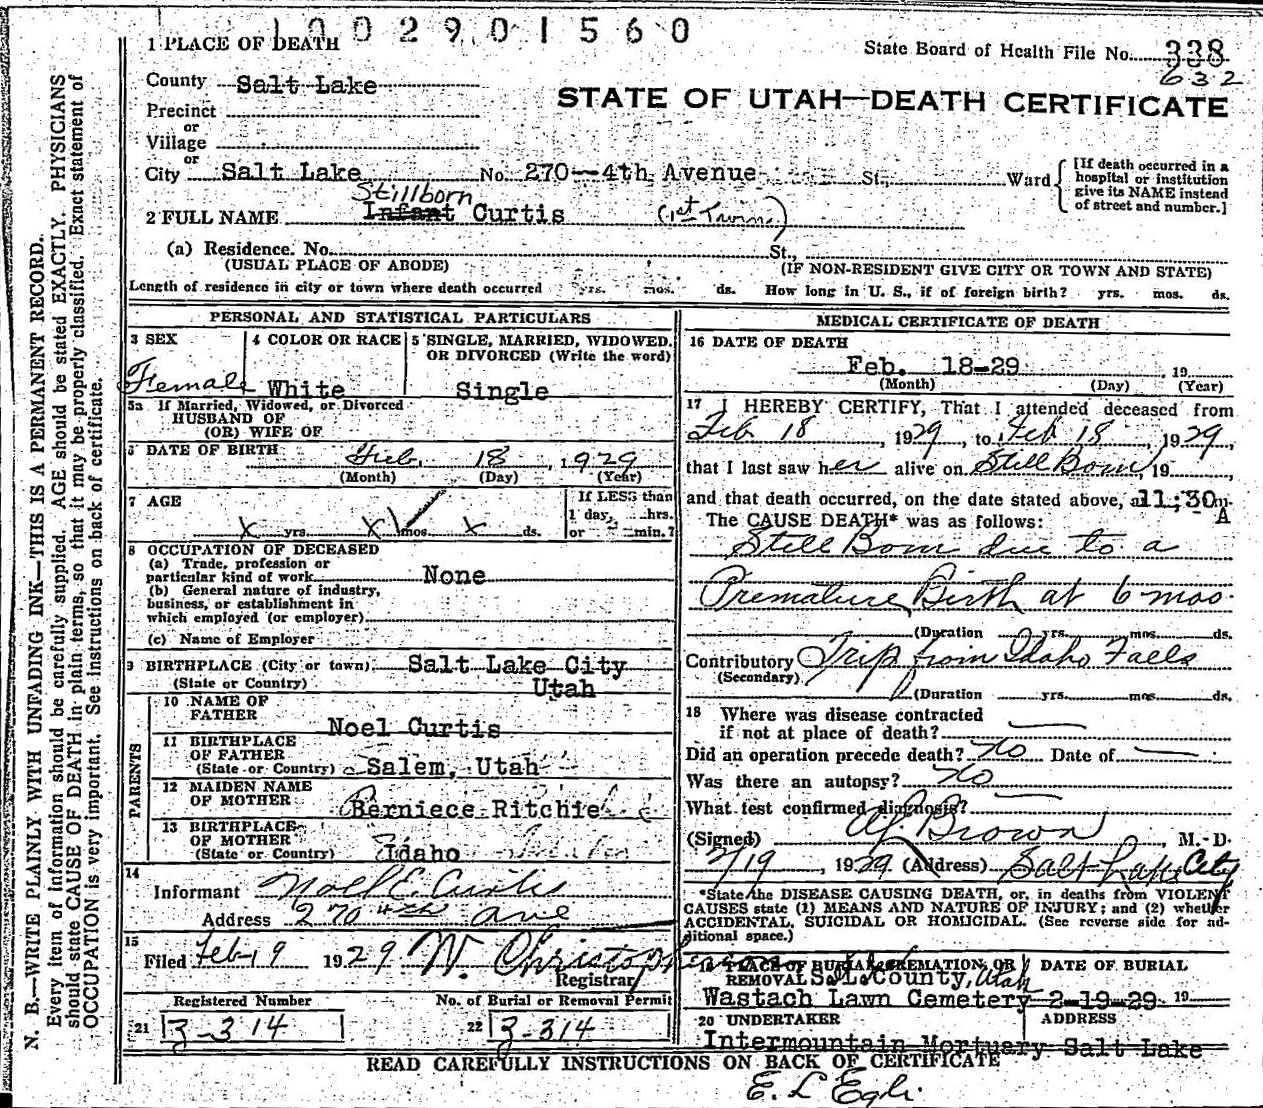 1 0 0 2 9 0 1 5 6 0
1 PLACE OF DEATH
State Board of Health File No. 338
632
County Salt Lake
STATE OF UTAH—DEATH CERTIFICATE
Precinct
or
Village
or
City Salt Lake No. 270—4th Avenue St., Ward
[If death occurred in a hospital or institution give its NAME instead of street and number.]
Stillborn
2 FULL NAME Infant Curtis (1st Twin)
(a) Residence. No. St.,
(USUAL PLACE OF ABODE) (IF NON-RESIDENT GIVE CITY OR TOWN AND STATE)
Length of residence in city or town where death occurred yrs. mos. ds. How long in U. S., if of foreign birth? yrs. mos. ds.
PERSONAL AND STATISTICAL PARTICULARS
3 SEX 4 COLOR OR RACE 5 SINGLE, MARRIED, WIDOWED, OR DIVORCED (Write the word)
Female White Single
5a If Married, Widowed, or Divorced
HUSBAND OF
(OR) WIFE OF
6 DATE OF BIRTH Feb. 18, 1929
(Month) (Day) (Year)
7 AGE If LESS than
1 day, hrs.
x yrs. x mos. x ds. or min.?
8 OCCUPATION OF DECEASED
(a) Trade, profession or
particular kind of work None
(b) General nature of industry,
business, or establishment in
which employed (or employer)
(c) Name of Employer
9 BIRTHPLACE (City or town) Salt Lake City
(State or Country) Utah
PARENTS
10 NAME OF
FATHER Noel Curtis
11 BIRTHPLACE
OF FATHER
(State or Country) Salem, Utah
12 MAIDEN NAME
OF MOTHER Berniece Ritchie
13 BIRTHPLACE
OF MOTHER
(State or Country) Idaho
14
Informant Noel E. Curtis
Address 270 4th Ave
15
Filed Feb 19 1929 W. Christopherson
Registrar
Registered Number No. of Burial or Removal Permit
21 3-314 22 3-314
MEDICAL CERTIFICATE OF DEATH
16 DATE OF DEATH
Feb. 18-29, 19
(Month) (Day) (Year)
17 I HEREBY CERTIFY, That I attended deceased from
Feb 18, 1929, to Feb 18, 1929,
that I last saw her alive on Still Born, 19
and that death occurred, on the date stated above, at 11;30 m.
A
The CAUSE DEATH* was as follows:
Still Born due to a
Premature Birth at 6 mos.
(Duration yrs. mos. ds.
Contributory Trip from Idaho Falls
(Secondary)
(Duration yrs. mos. ds.
18 Where was disease contracted
if not at place of death?
Did an operation precede death? No Date of
Was there an autopsy? No
What test confirmed diagnosis?
(Signed) Brown, M. D.
2/19, 1929 (Address) Salt Lake City
*State the DISEASE CAUSING DEATH, or, in deaths from VIOLENT
CAUSES state (1) MEANS AND NATURE OF INJURY; and (2) whether
ACCIDENTAL, SUICIDAL OR HOMICIDAL. (See reverse side for ad-
ditional space.)
19 PLACE OF BURIAL, CREMATION, OR DATE OF BURIAL
REMOVAL S.L. County, Utah
Wastach Lawn Cemetery 2-19-29 19
20 UNDERTAKER ADDRESS
Intermountain Mortuary Salt Lake
READ CAREFULLY INSTRUCTIONS ON BACK OF CERTIFICATE
E. L Egli
N. B.—WRITE PLAINLY WITH UNFADING INK—THIS IS A PERMANENT RECORD.
Every item of information should be carefully supplied. AGE should be stated EXACTLY. PHYSICIANS
should state CAUSE OF DEATH in plain terms, so that it may be properly classified. Exact statement of
OCCUPATION is very important. See instructions on back of certificate.